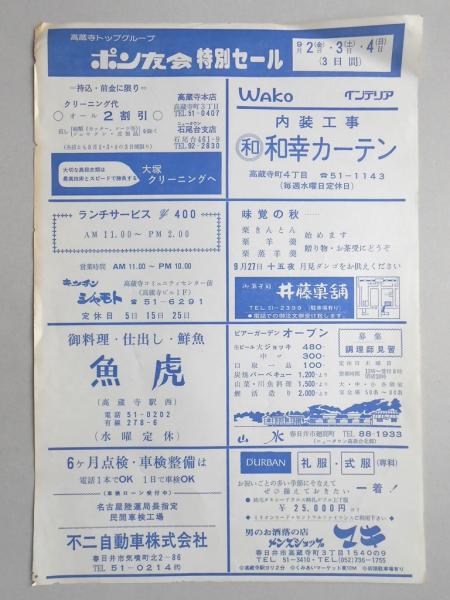 高蔵寺トップグループ
ポン友会 特別セール
9月2(金)・3(土)・4(日)
(3日間)
=持込・前金に限り=
クリーニング代
オール2割引
(各店とも9月2・3・4の3日間限り)
高蔵寺本店
高蔵寺町3丁目
TEL 51-0407
ニュータウン
石尾台支店
TEL 92-2830
大切な高級衣類は
最高技術とスピードで勝負する
大塚
クリーニングへ
WAKO インテリア
内装工事
和 和幸カーテン
高蔵寺町4丁目 ☎51-1143
(毎週水曜日定休日)
ランチサービス ¥400
AM 11.00~PM 2.00
営業時間 AM 11.00~PM 10.00
キッチン
シャモト
高蔵寺コミュニティセンター前
(高蔵寺ビル1F)
☎51-6291
定休日 5日 15日 25日
味覚の秋……
栗きんとん
栗羊羹
栗蒸羊羹
始めます
贈り物・お茶受にどうぞ
9月27日十五夜 月見ダンゴをお供えください
御菓子司 井藤菓舗
TEL 51-2399 (駐車場有り)
●電話での御注文御受け致します。
御料理・仕出し・鮮魚
魚虎
(高蔵寺駅西)
電話 51-0202
有線 278-6
(水曜定休)
ビアーガーデン オープン
生ビール 大ジョッキ 480-
中〃 300-
口取一品 100-
炭焼バーベキュー 1,200-より
山菜・川魚料理 1,500-より
鯉活造り 2,000-より
募集
調理師見習
定休日 木曜日
大・中・小各個室
宴会場 50名~80名
山水 春日井市廻間町 TEL 88-1933
(ニュータウン高森台北側)
6ヶ月点検・車検整備は
電話1本でOK 1日で車検OK
(車検ローン受付中)
名古屋陸運局長指定
民間車検工場
不二自動車株式会社
春日井市気噴町北2-86
TEL 51-0214(代)
D'URBAN 礼服・式服(専科)
お祝いごとの多い季節にそなえて
ぜひ備えておきたい 一着!
¥25,000円より
男のお洒落の店
メンズショップ マキ
春日井市高蔵寺町3丁目1540の9
TEL 51-3410・TEL(052)736-1755
●高蔵寺駅ヨリ2分 ●くみあいマーケット東10M ●店頭駐車場有り